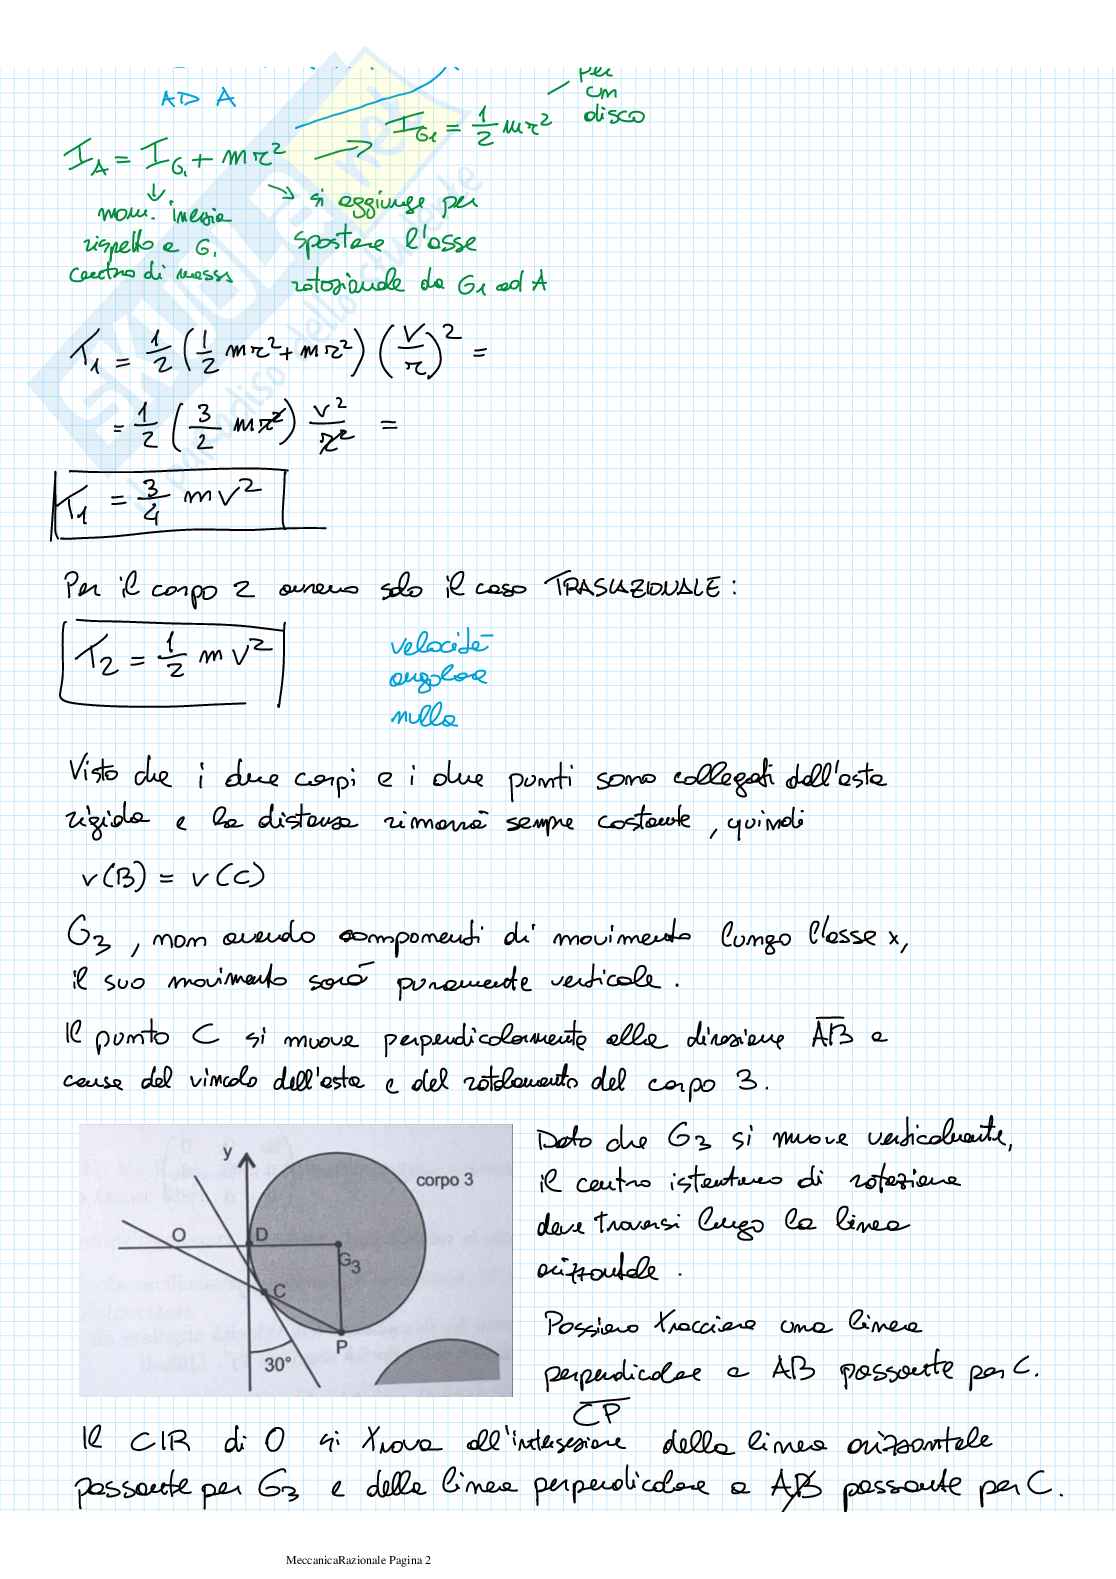 per
cm
disco
AD A
I_A = I_G₁ + mr² → I_G₁ = 1/2 mr²
mom. inerzia
rispetto a G₁
centro di massa
si aggiunge per
spostare l'asse
rotazionale da G₁ ad A
T₁ = 1/2 (1/2 mr² + mr²) (v/r)² =
= 1/2 (3/2 mr²) v²/r² =
T₁ = 3/4 mv²
Per il corpo 2 avremo solo il caso TRASLAZIONALE :
T₂ = 1/2 mv²
velocità
angolare
nulla
Visto che i due corpi e i due punti sono collegati dall'asta
rigida e la distanza rimarrà sempre costante, quindi
v(B) = v(C)
G₃, non avendo componenti di movimento lungo l'asse x,
il suo movimento sarà puramente verticale.
Il punto C si muove perpendicolarmente alla direzione AB a
causa del vincolo dell'asta e del rotolamento del corpo 3.
y
corpo 3
O
D
G₃
C
P
30°
Dato che G₃ si muove verticalmente,
il centro istantaneo di rotazione
deve trovarsi lungo la linea
orizzontale.
Possiamo tracciare una linea
perpendicolare a AB passante per C.
CP
Il CIR di O si trova all'intersezione della linea orizzontale
passante per G₃ e della linea perpendicolare a AB passante per C.
MeccanicaRazionale Pagina 2